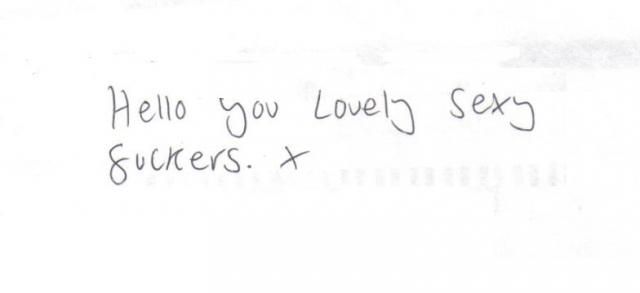 Hello you Lovely Sexy
fuckers. x